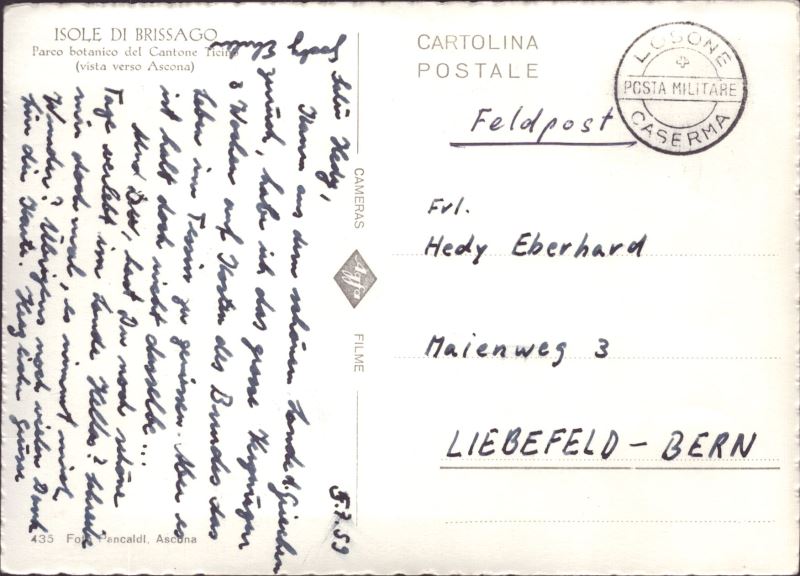 ISOLE DI BRISSAGO
Parco botanico del Cantone Ticino
(vista verso Ascona)
5.7.59
Hedy,
Kaum aus dem schönen Lande d. Griechen
zurück, habe ich das grosse Vergnügen
3 Wochen auf Kosten des Bundes das
Leben im Tessin zu geniessen. Aber es
ist halt doch nicht dasselbe...
Und Du, hast Du noch schöne
Tage verlebt im Lande Hellas? Schreibe
mir doch mal, es nimmt mich
Wunder! Übrigens noch vielen Dank
für die Karte. Herzliche Grüsse
435 Foto Pancaldi, Ascona
CAMERAS
Agfa
FILME
CARTOLINA
POSTALE
LOSONE
POSTA MILITARE
CASERMA
Feldpost
Frl.
Hedy Eberhard
Maienweg 3
LIEBEFELD - BERN